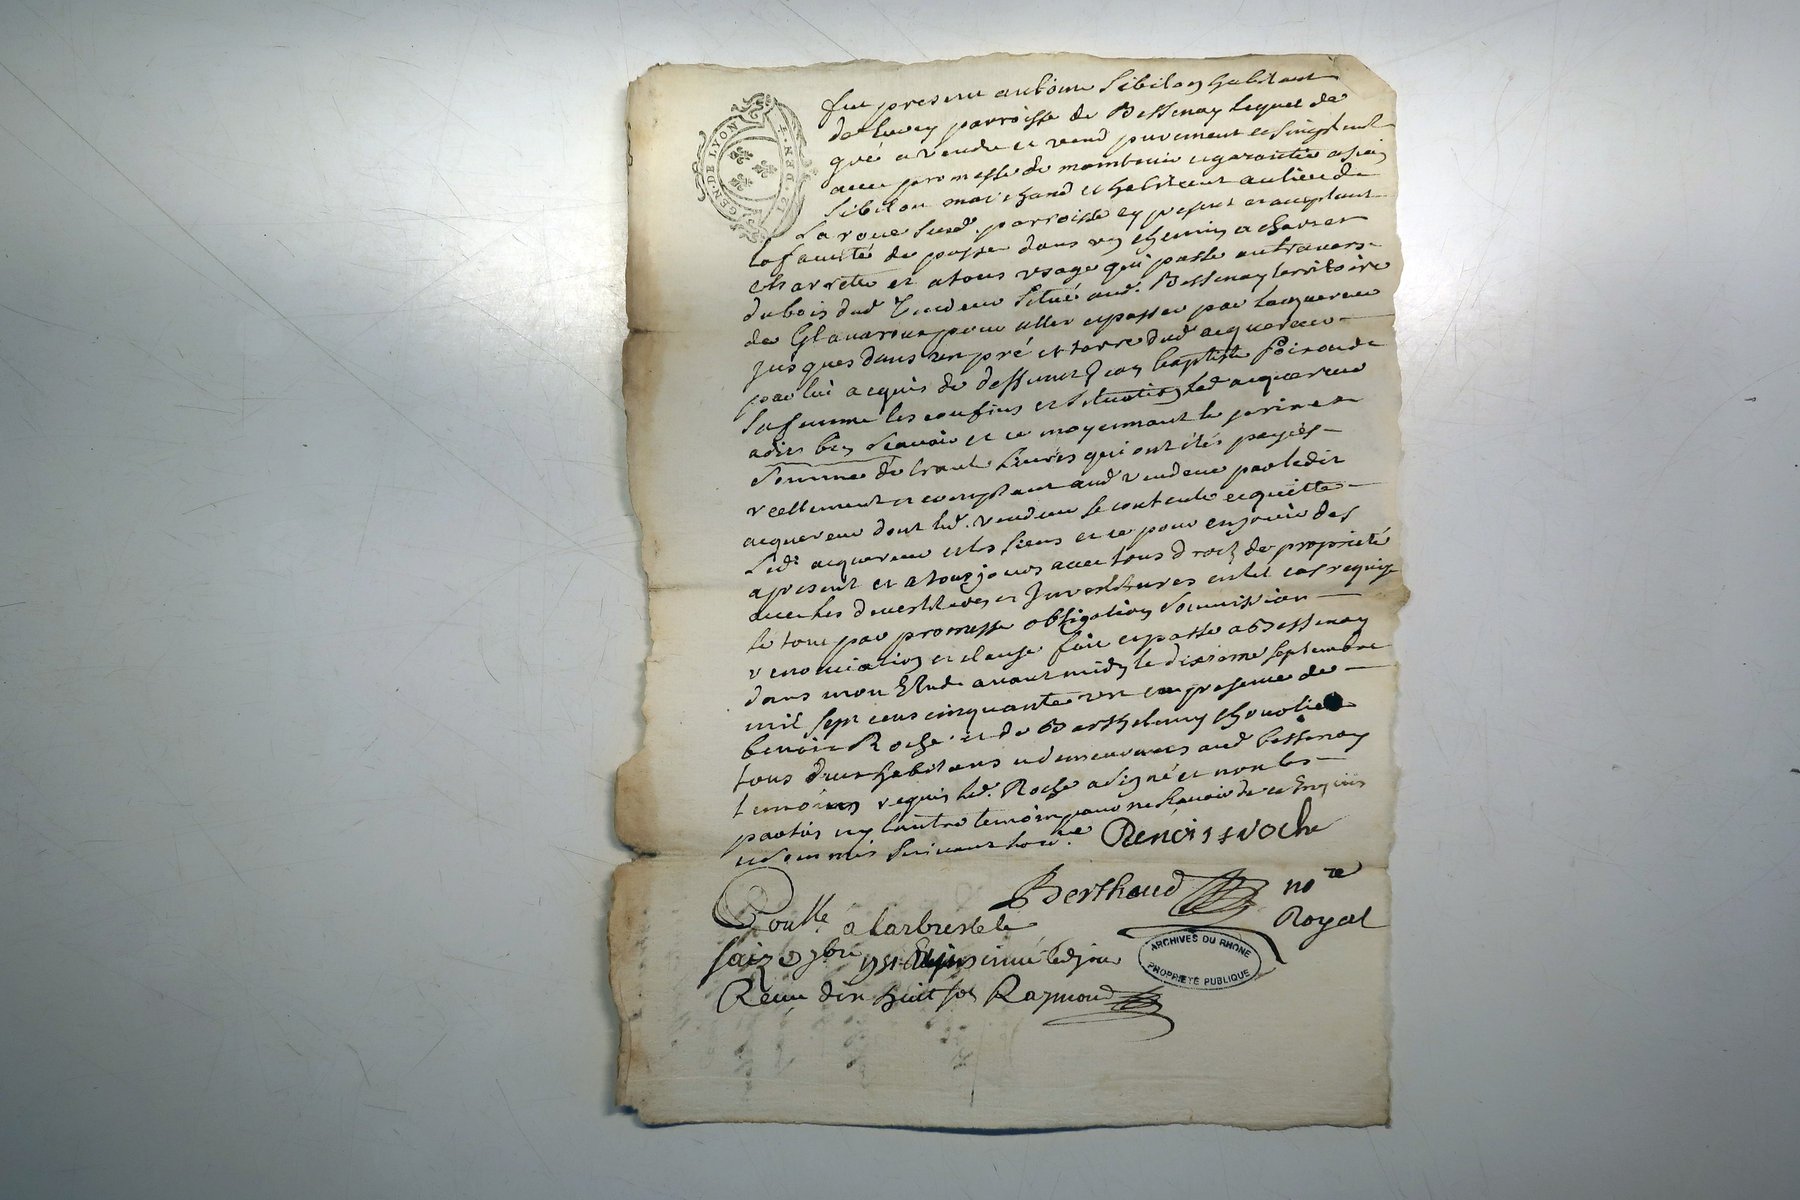 GEN. DE LYON
2 DEN. 4
fut present antoine Sibilon habitant
de parroisse de Bessenay lequel de
gré a vendu et vend purement et simplemt
avec promesse de maintenir et garantir a
Sibilon marchand et habitant au lieu de
La roue susd. parroisse cy present et acceptant
la faculté de passer dans un chemin a chars et
charrette et a tous usage qui passe au travers
du bois dud vendeur situé aud. Bessenay territoire
de Glavaroux pour aller et passer par lacquereur
jusques dans un pré et terre dud acquereur
par lui acquis de deffunt Jean baptiste et de
sa femme les confins et situation led acquereur
a dit bien sçavoir et ce moyennant le prix et
somme de trante livres qui ont étés payés
reellement et comptant aud vendeur par ledit
acquereur dont led. vendeur se contente et quitte
led. acquereur et les siens et ce pour en jouir des
a present et a toujours avec tous droits de proprieté
avec les devestitures et Investitures en tel cas requise
le tout par promesse obligation soumission
renonciation et clause fait et passé a Bessenay
dans mon Etude avant midy le dixieme septembre
mil sept cens cinquante un en presence de
benoit Roche et de Barthelemy
tous deux habitans et demeurants aud bessenay
temoins requis led. Roche a signé et non les
parties ny lautre temoin pour ne sçavoir de ce Enquis
et sommés suivant lord.ce Benoist roche
Berthaud no.re
Royal
Conll.é a Larbresle le
saize 7bre 1751 insinué led jour
Receu dix huit sols Raymond
ARCHIVES DU RHONE
PROPRIÉTÉ PUBLIQUE